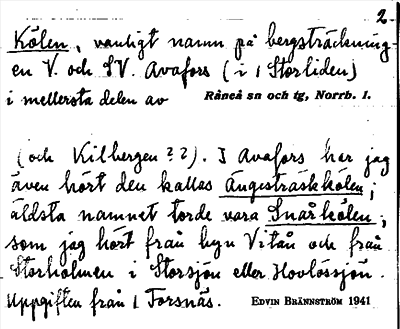 2
Kölen, vanligt namn på bergsträckning-
en V. och SV. Avafors (i 1 Storliden)
i mellersta delen av Råneå sn och tg, Norrb. l.
(och Kilbergen ??). I Avafors har jag
även hört den kallas Ängesträskkölen;
äldsta namnet torde vara Snårkölen,
som jag hört från byn Vitån och från
Storholmen i Storsjön eller Hovlössjön.
Uppgiften från 1 Forsnäs. EDVIN BRÄNNSTRÖM 1941